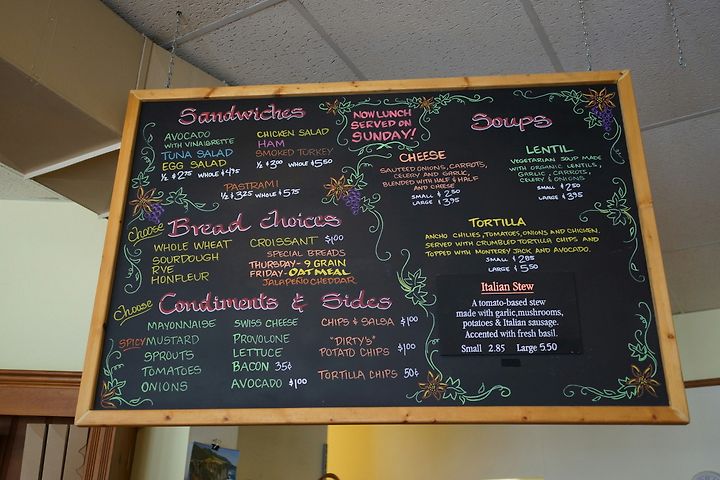 Sandwiches
AVOCADO
WITH VINAIGRETTE
TUNA SALAD
EGG SALAD
½ $2.75 WHOLE $4.75
CHICKEN SALAD
HAM
SMOKED TURKEY
½ $3.00 WHOLE $5.50
PASTRAMI
½ $3.25 WHOLE $5.75
NOW LUNCH
SERVED ON
SUNDAY!
Choose Bread Choices
WHOLE WHEAT
SOURDOUGH
RYE
HONFLEUR
CROISSANT $1.00
SPECIAL BREADS
THURSDAY- 9 GRAIN
FRIDAY- OATMEAL
JALAPEÑO CHEDDAR
Choose Condiments & Sides
MAYONNAISE
SPICY MUSTARD
SPROUTS
TOMATOES
ONIONS
SWISS CHEESE
PROVOLONE
LETTUCE
BACON 35¢
AVOCADO $1.00
CHIPS & SALSA $1.00
"DIRTY'S"
POTATO CHIPS $1.00
TORTILLA CHIPS 50¢
Soups
CHEESE
SAUTEED ONIONS, CARROTS,
CELERY AND GARLIC,
BLENDED WITH HALF & HALF
AND CHEESE
SMALL $2.50
LARGE $3.95
LENTIL
VEGETARIAN SOUP MADE
WITH ORGANIC LENTILS,
GARLIC, CARROTS,
CELERY & ONIONS
SMALL $2.50
LARGE $3.95
TORTILLA
ANCHO CHILIES, TOMATOES, ONIONS AND CHICKEN,
SERVED WITH CRUMBLED TORTILLA CHIPS AND
TOPPED WITH MONTEREY JACK AND AVOCADO.
SMALL $2.85
LARGE $5.50
Italian Stew
A tomato-based stew
made with garlic,mushrooms,
potatoes & Italian sausage.
Accented with fresh basil.
Small 2.85 Large 5.50